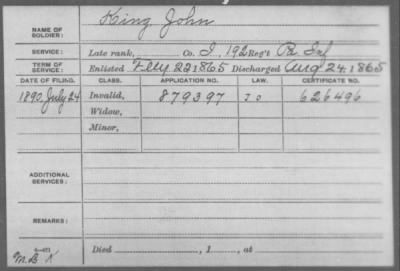 King John
NAME OF SOLDIER:
SERVICE: Late rank, Co. I, 192 Reg't Pa. Inf
TERM OF SERVICE: Enlisted Feby 22 1865 Discharged Aug 24, 1865
DATE OF FILING. CLASS. APPLICATION NO. LAW. CERTIFICATE NO.
1890, July 24 Invalid, 879397 626496
Widow,
Minor,
ADDITIONAL SERVICES:
REMARKS:
Died , 1 , at
M.B.K